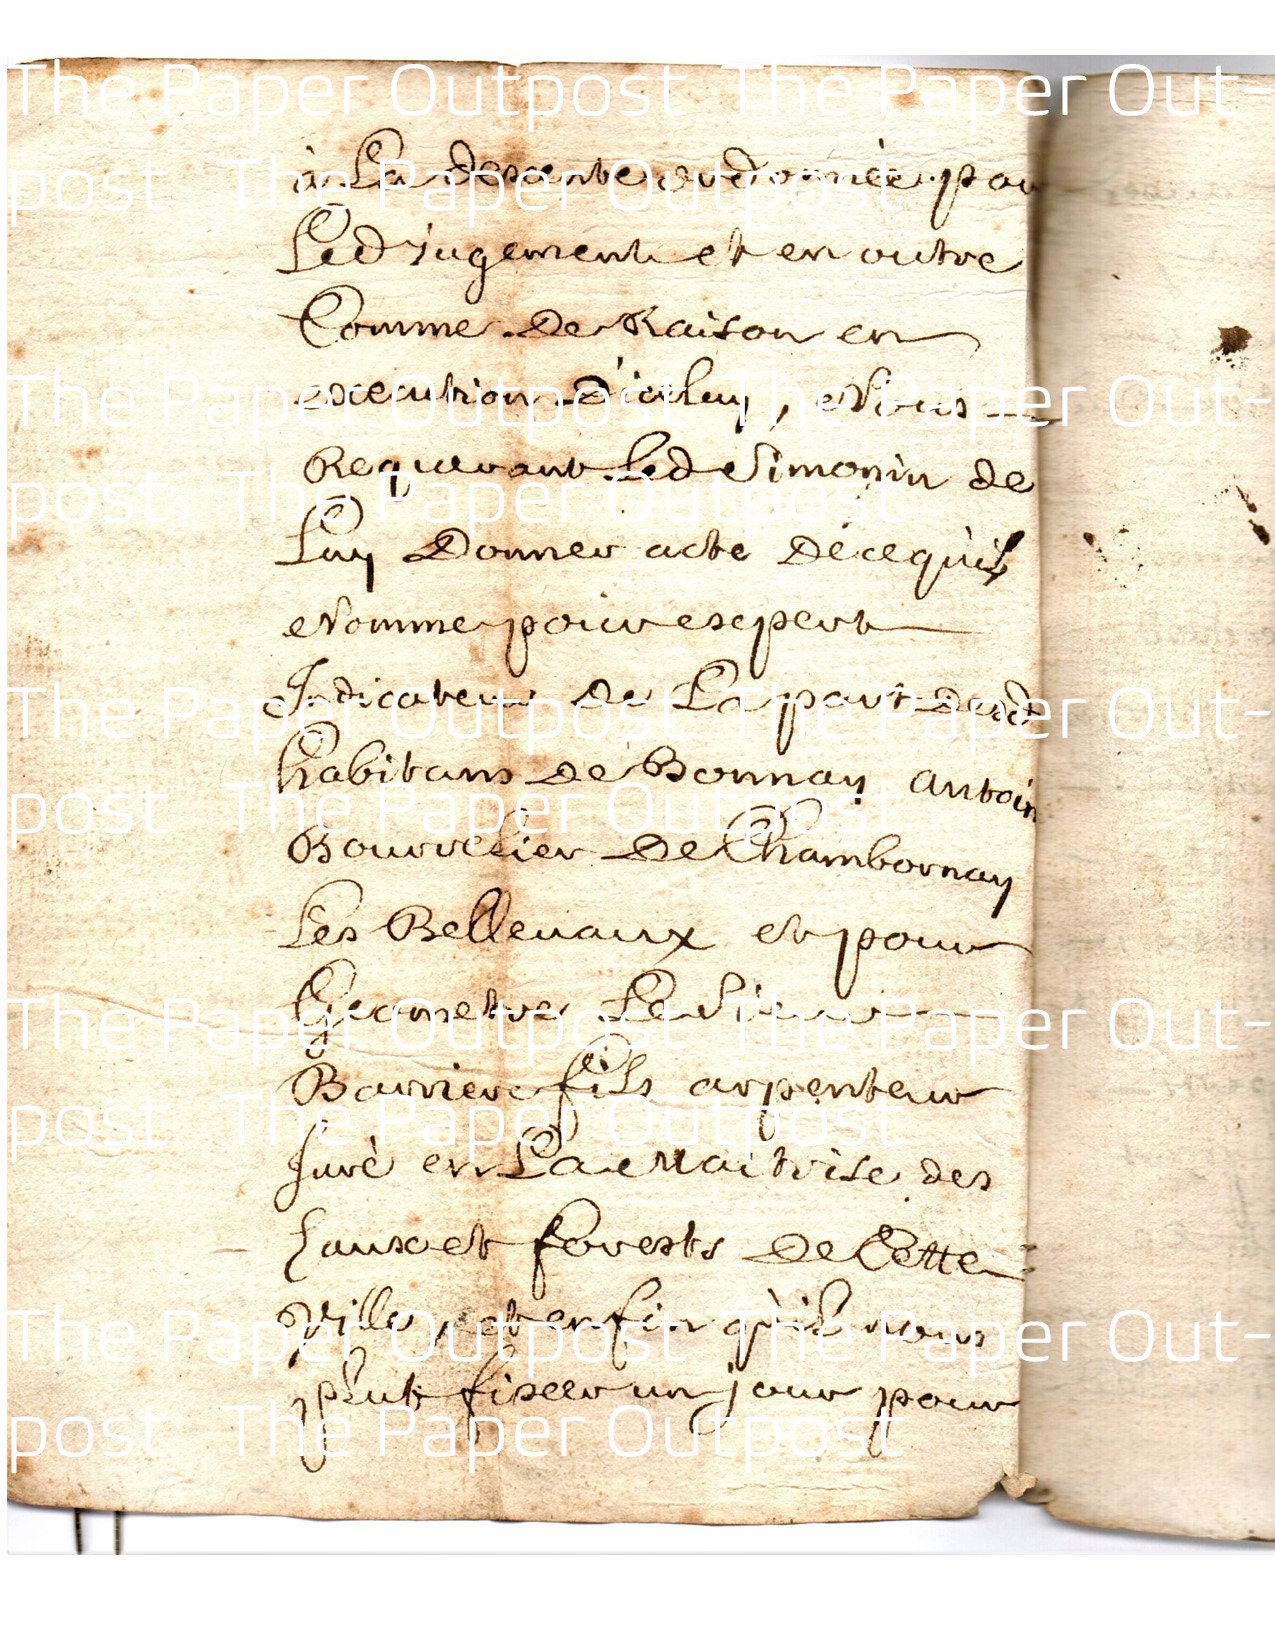 à La descente ordonnée par
Led jugement et en outre
Comme de Raison en
execution d'iceluy, Nous
Requerant Led Simonin de
Luy Donner acte de ce qu'il
Nomme pour expert
Indicateur de La part desd
habitans de Bonnay antoin
Bourrelier de Chambornay
Les Bellevaux et pour
Geometre Le Sieur
Barriere fils arpenteur
Juré en La Maitrise des
Eaux et forests de Cette
Ville, et enfin qu'il nous
plut fixer un jour pour
The Paper Outpost The Paper Out-
post The Paper Outpost
The Paper Outpost The Paper Out-
post The Paper Outpost
The Paper Outpost The Paper Out-
post The Paper Outpost
The Paper Outpost The Paper Out-
post The Paper Outpost
The Paper Outpost The Paper Out-
post The Paper Outpost